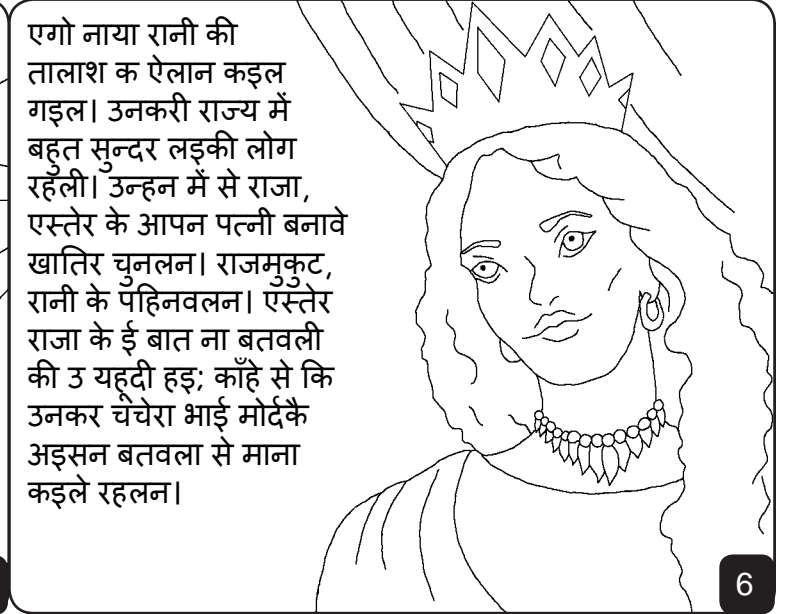 एगो नाया रानी की
तालाश क ऐलान कइल
गइल। उनकरी राज्य में
बहुत सुन्दर लइकी लोग
रहली। उन्हन में से राजा,
एस्तेर के आपन पत्नी बनावे
खातिर चुनलन। राजमुकुट,
रानी के पहिनवलन। एस्तेर
राजा के ई बात ना बतवली
की उ यहूदी हइ; काँहे से कि
उनकर चचेरा भाई मोर्दकै
अइसन बतवला से माना
कइले रहलन।
6